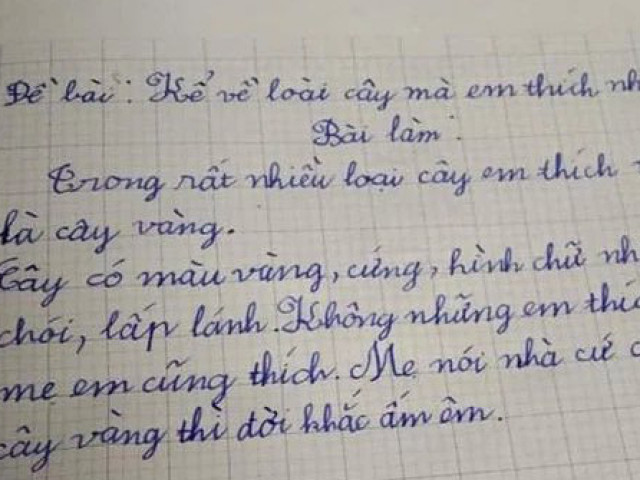 Đề bài: Kể về loài cây mà em thích nh
Bài làm:
Trong rất nhiều loại cây em thích
là cây vàng.
Cây có màu vàng, cứng, hình chữ nh
chói, lấp lánh. Không những em thí
mẹ em cũng thích. Mẹ nói nhà cứ c
cây vàng thì đời khắc ấm êm.